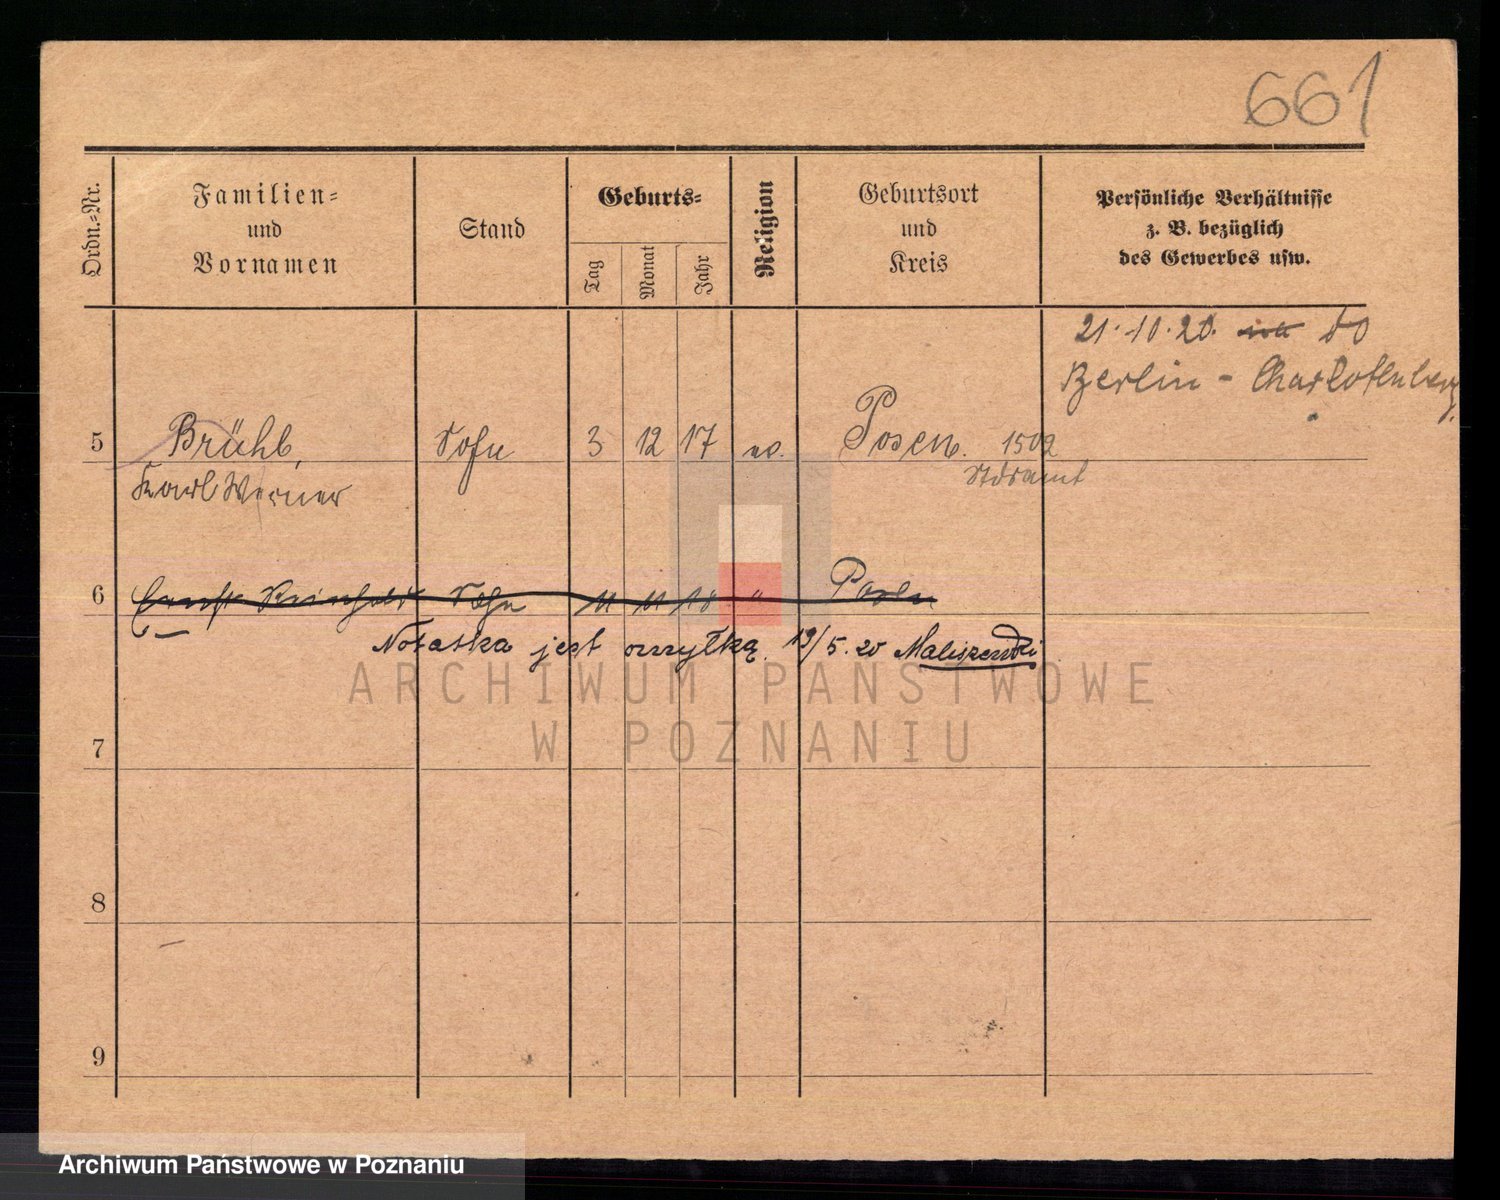 661
Ordn.-Nr.
Familien-
und
Vornamen
Stand
Geburts-
Tag
Monat
Jahr
Religion
Geburtsort
und
Kreis
Persönliche Verhältnisse
z. B. bezüglich
des Gewerbes usw.
21.10.20. do
Berlin - Charlottenberg
5 Brühl, Sohn 3 12 17 ev. Posen. 1502
Karl Werner Stdsamt
6 Ernst Reinhold Sohn 11 11 18 " Posen
Notatka jest omyłką. 19/5.20 Maliszewski
ARCHIWUM PAŃSTWOWE
W POZNANIU
7
8
9
Archiwum Państwowe w Poznaniu